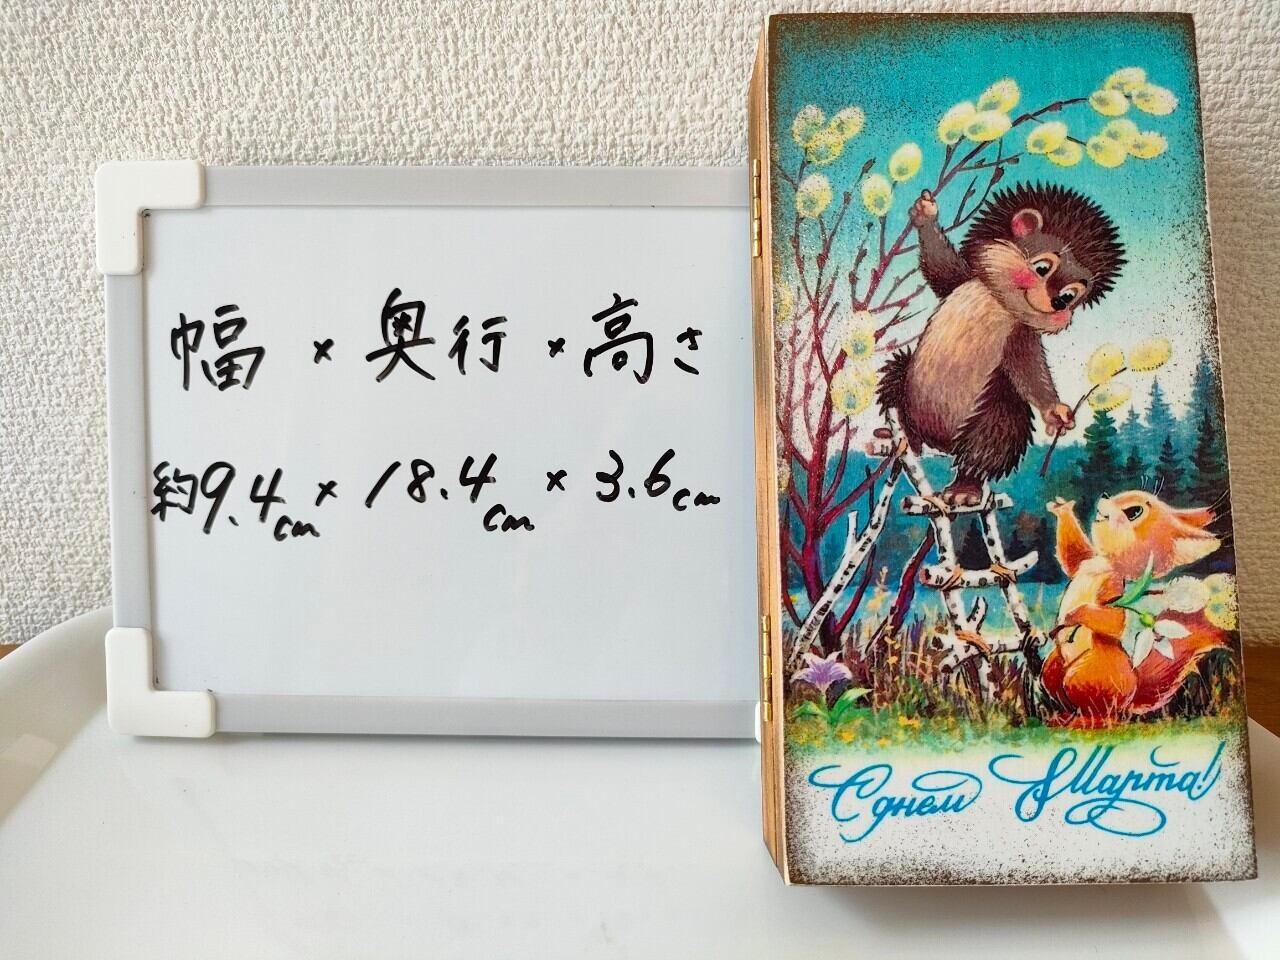 幅 × 奥行 × 高さ
約9.4cm × 18.4cm × 3.6cm
С днем 8 Марта!